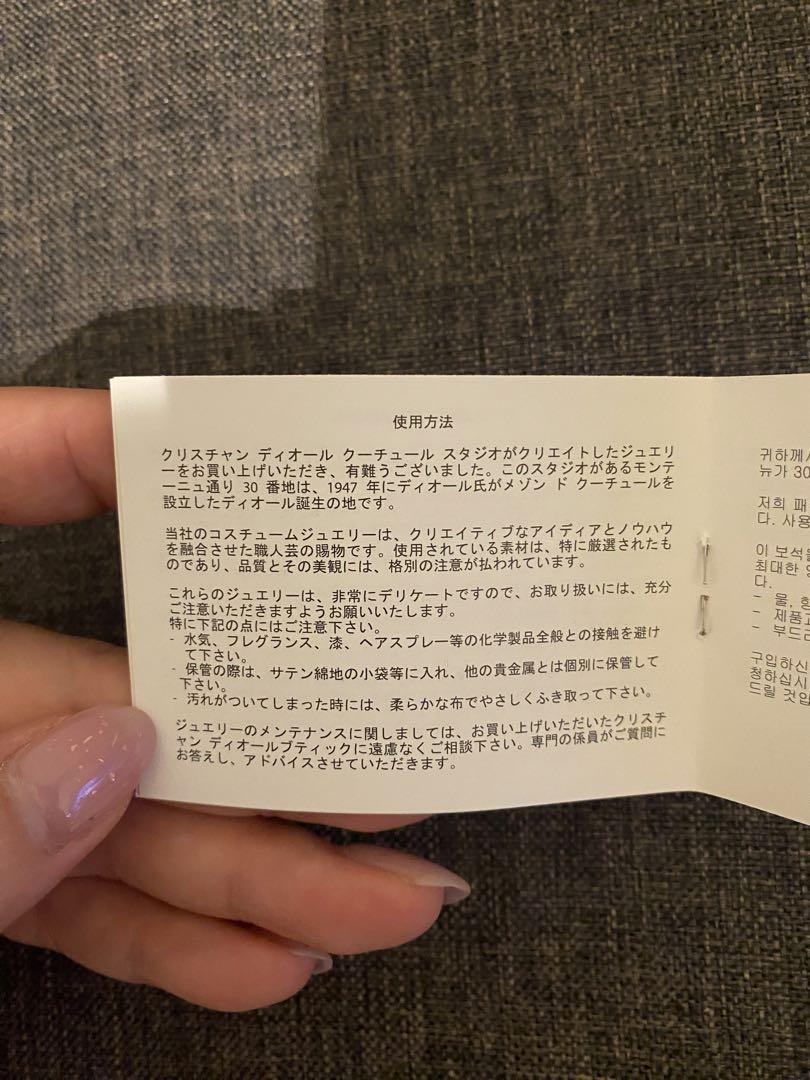 使用方法
クリスチャン ディオール クーチュール スタジオがクリエイトしたジュエリ
ーをお買い上げいただき、有難うございました。このスタジオがあるモンテ
ーニュ通り 30 番地は、1947 年にディオール氏がメゾン ド クーチュールを
設立したディオール誕生の地です。
当社のコスチュームジュエリーは、クリエイティブなアイディアとノウハウ
を融合させた職人芸の賜物です。使用されている素材は、特に厳選されたも
のであり、品質とその美観には、格別の注意が払われています。
これらのジュエリーは、非常にデリケートですので、お取り扱いには、充分
ご注意いただきますようお願いいたします。
特に下記の点にはご注意下さい。
- 水気、フレグランス、漆、ヘアスプレー等の化学製品全般との接触を避け
て下さい。
- 保管の際は、サテン綿地の小袋等に入れ、他の貴金属とは個別に保管して
下さい。
- 汚れがついてしまった時には、柔らかな布でやさしくふき取って下さい。
ジュエリーのメンテナンスに関しましては、お買い上げいただいたクリスチ
ャン ディオールブティックに遠慮なくご相談下さい。専門の係員がご質問に
お答えし、アドバイスさせていただきます。
귀하께서
뉴가 30
저희 패
다. 사용
이 보석을
최대한
다.
- 물,
- 제품
- 부드러
구입하신
청하십시
드릴 것입